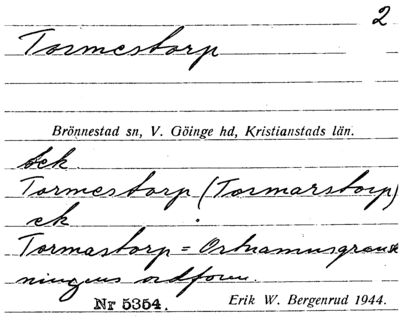 2
Tormestorp
Brönnestad sn, V. Göinge hd, Kristianstads län.
bek.
Tormestorp (Tormarstorp)
ek
Tormastorp = Ortnamnsgransk
ningens ordform.
Nr 5354. Erik W. Bergenrud 1944.